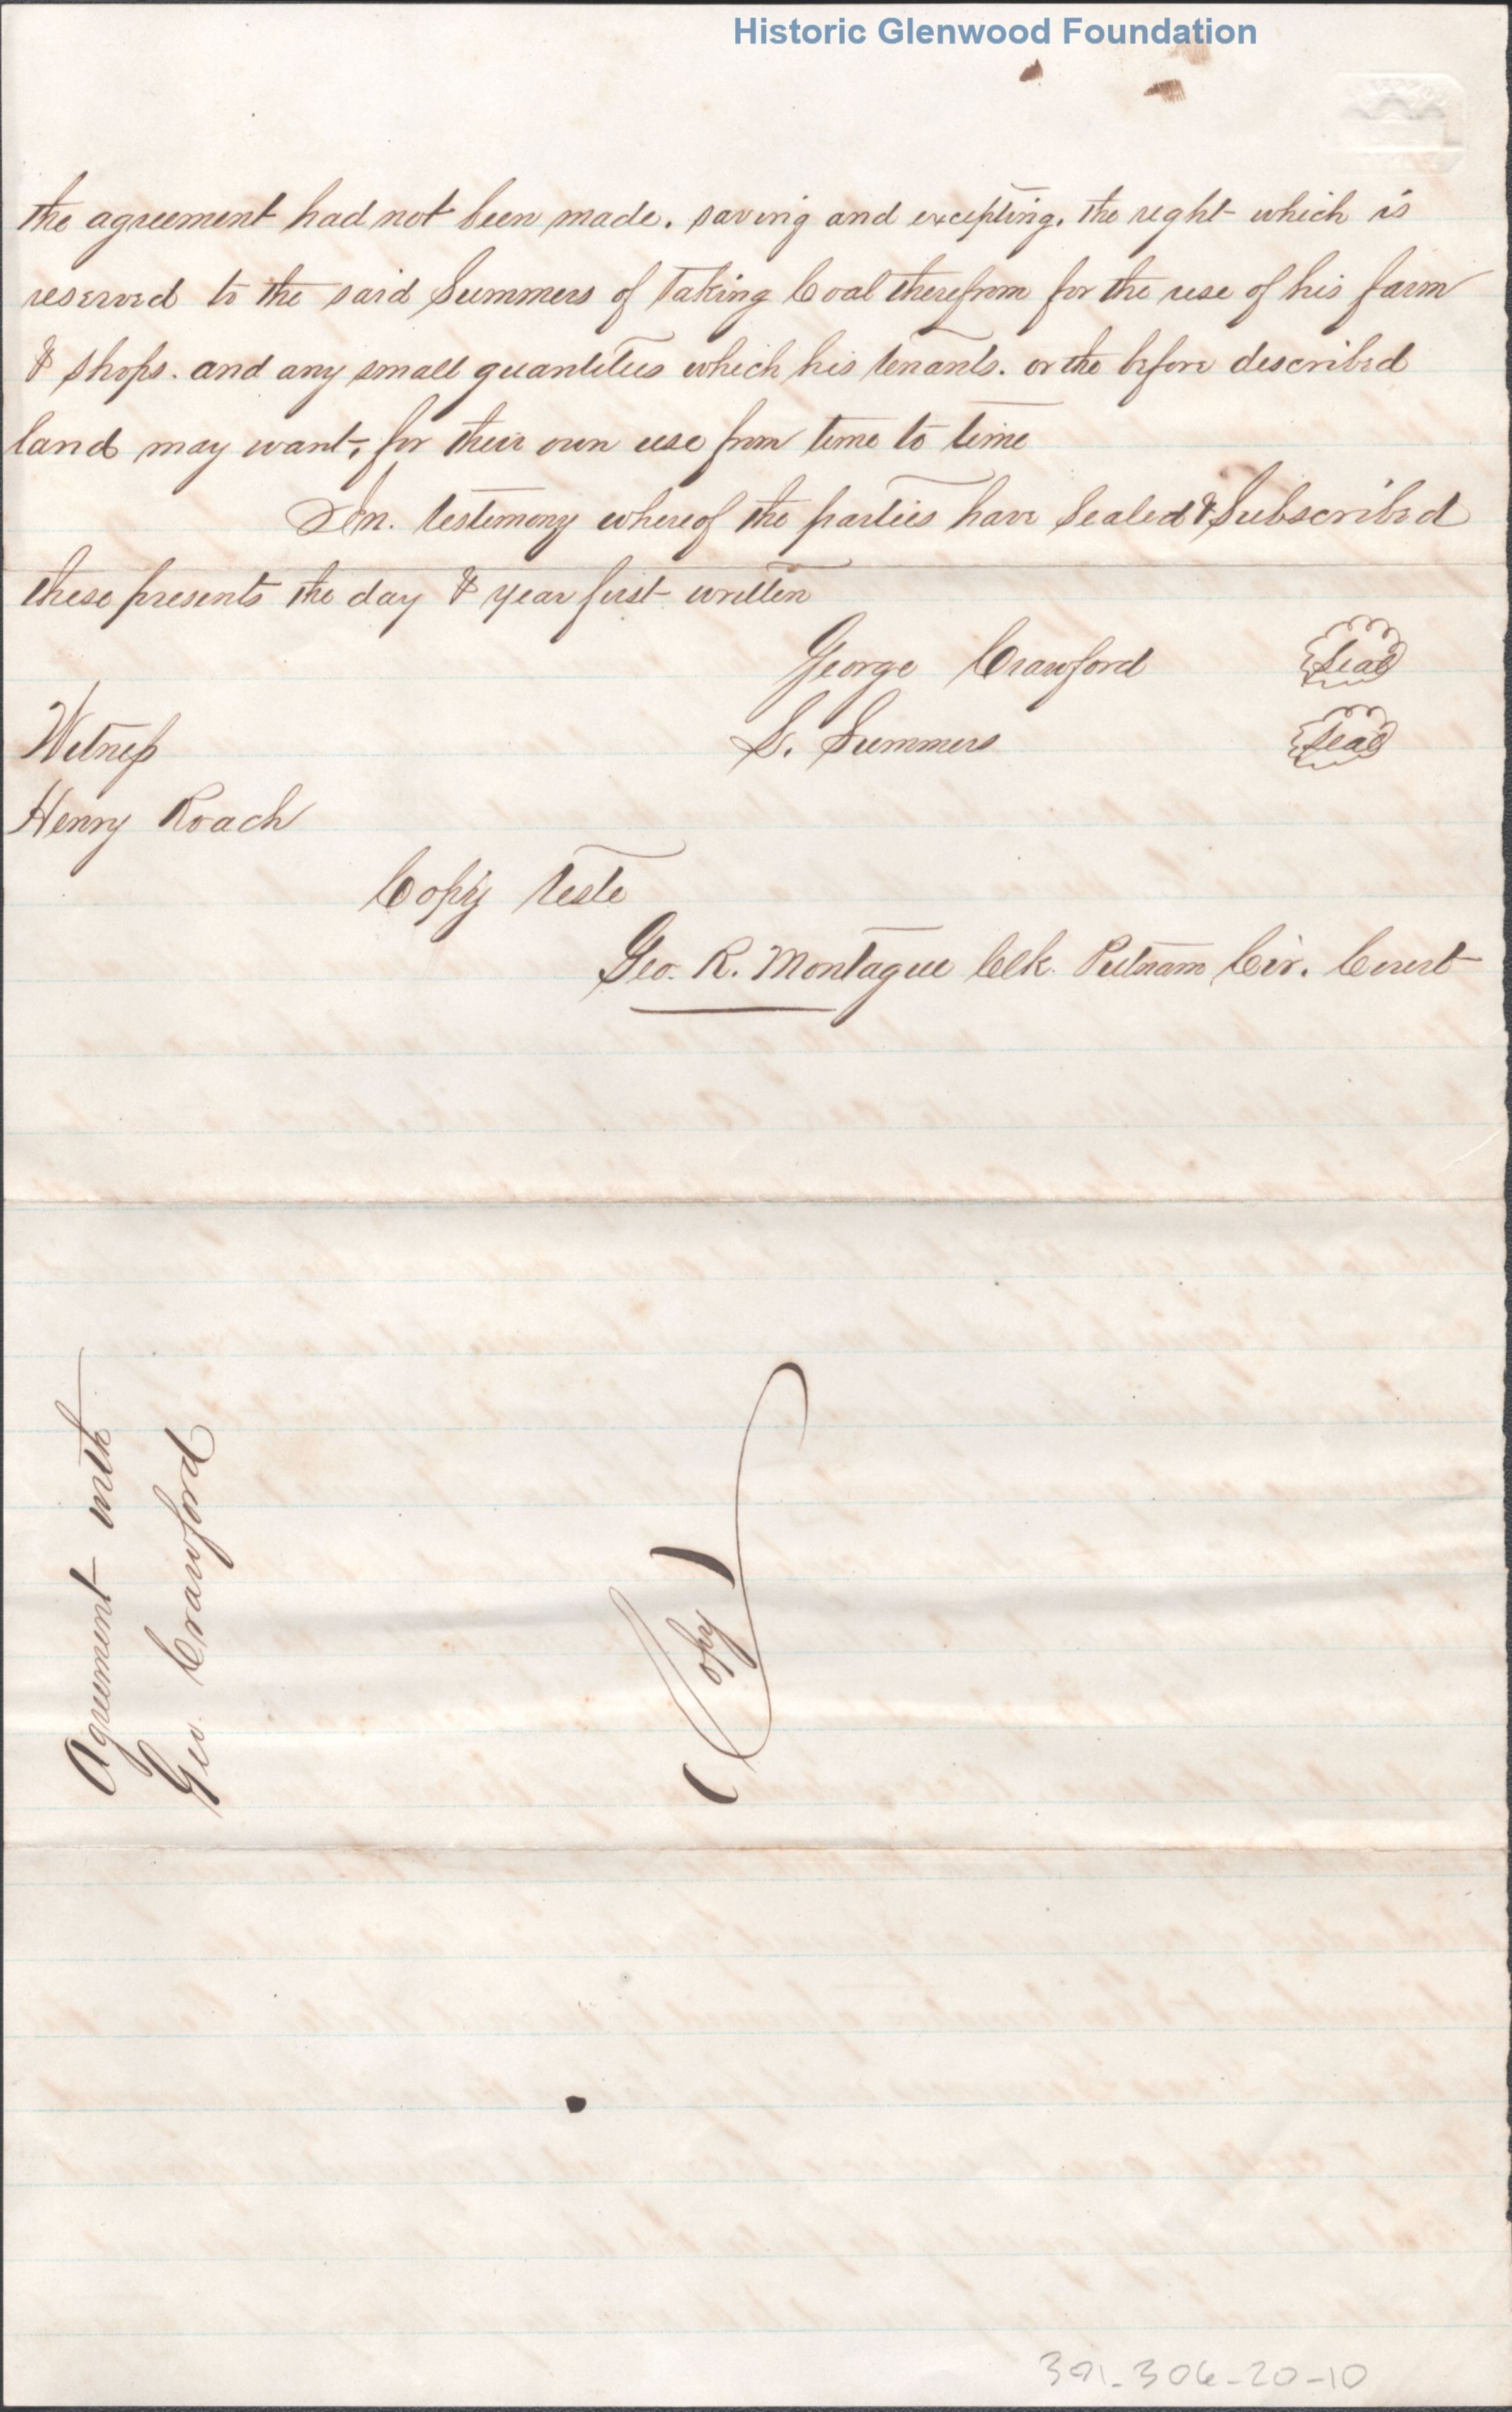 Historic Glenwood Foundation
the agreement had not been made. saving and excepting. the right which is
reserved to the said Summers of taking Coal therefrom for the use of his farm
& shops. and any small quantities which his tenants. or the before described
land may want, for their own use from time to time
In. testimony whereof the parties have Sealed & Subscribed
these presents the day & year first written
George Crawford Seal
Witness S. Summers Seal
Henry Roach
Copy teste
Geo. R. Montague Clk. Putnam Cir. Court
Agreement with
Geo Crawford
(Copy)
391-306-20-10